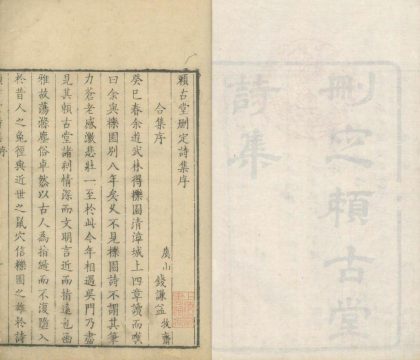 刪定賴古堂
詩集
賴古堂刪定詩集序
合集序
虞山 錢謙益 牧齋
癸巳春余道武林得櫟園清漳城上四章讀而嘆
曰余與櫟園別八年矣久不見櫟園詩不謂其筆
力蒼老感激悲壯一至於此今年相遇吳門乃盡
見其賴古堂諸刻情深而文明言近而指遠包函
雅故蕩滌塵俗卓然以古人為指歸而不復墮入
於昔人之兔徑與近世之鼠穴信櫟園之雄於詩